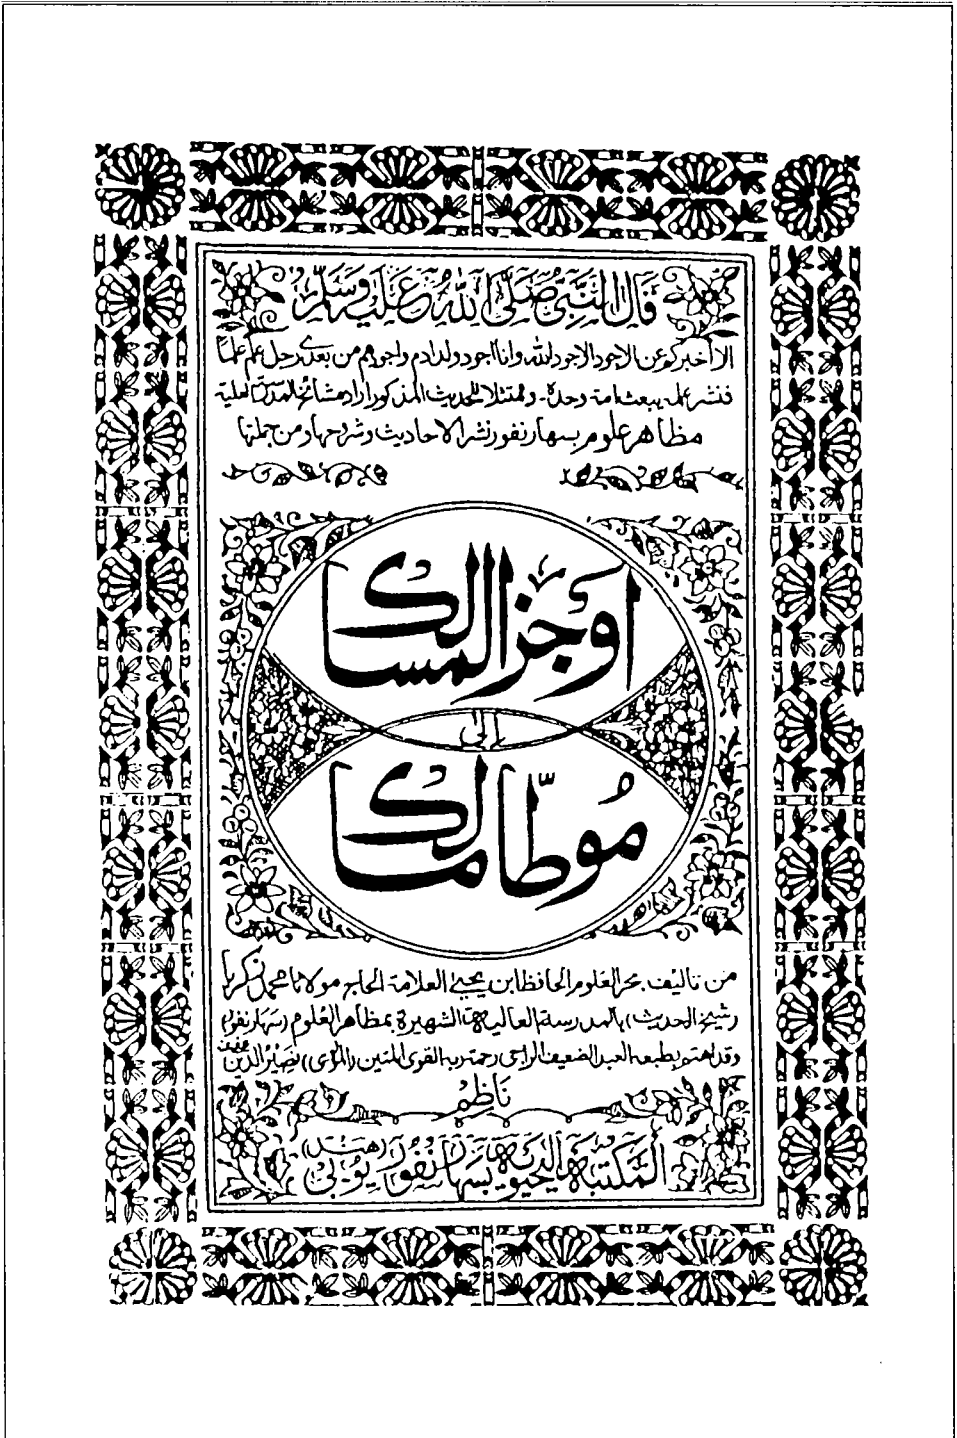 قَالَ النَّبِيُّ صَلَّى اللهُ عَلَيْهِ وَسَلَّمَ
الا اخبركم عن الاجود الاجود الله وانا اجود ولد ادم واجودهم من بعدى رجل علم علماً
فنشر علمه يبعث امة وحدة۔ وممتثلا للحديث المذكور اراد مشائخ المدرسة العلية
مظاهر علوم بسهارنفور نشر الاحاديث وشروحها ومن جملتها
أوجز المسالك
إلى
موطّا مالك
من تاليف بحر العلوم الحافظ ابن يحيىٰ العلامة الحاج مولانا محمد زكريا
(شيخ الحديث) بالمدرسة العالية الشهيرة بمظاهر العلوم (سهارنفور)
وقد اهتم بطبعه العبد الضعيف الراجى رحمة ربه القوى المتين (المولوى) نصير الدين
ناظم
المكتبة اليحيوية بسهارنفور يوبى (هند)